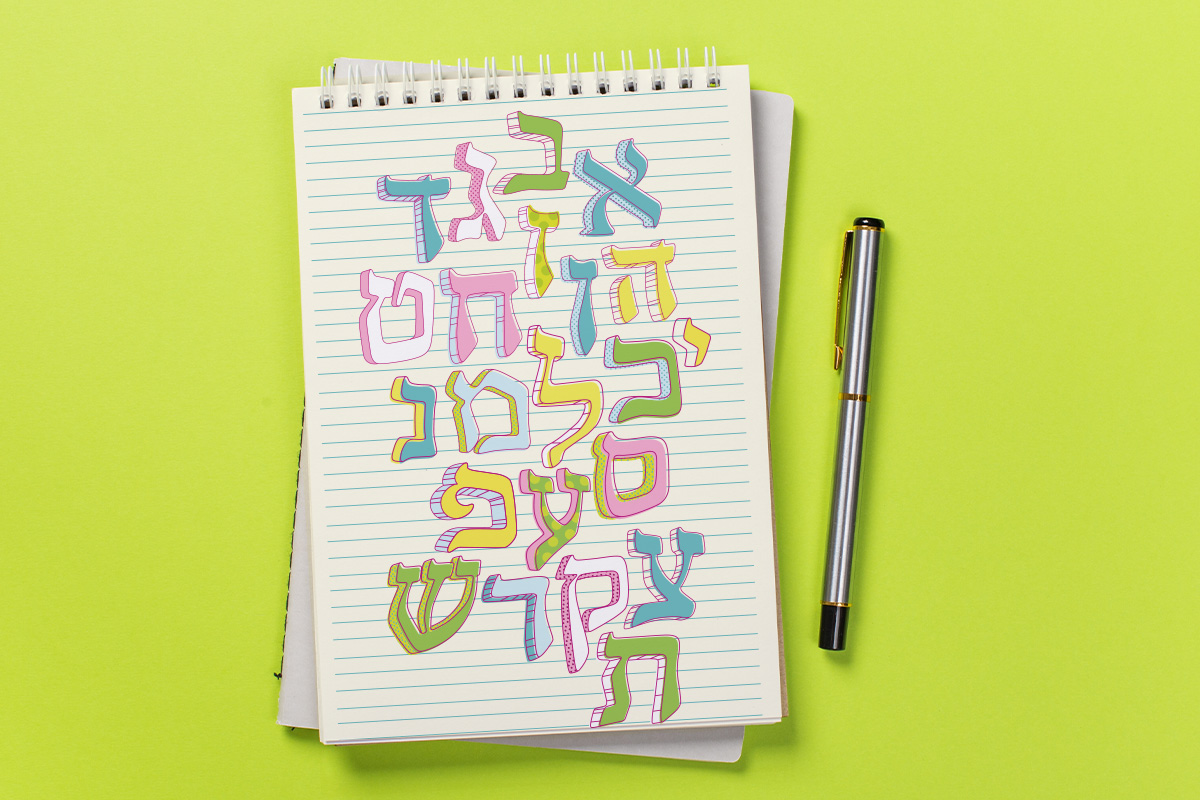 א ב ג ד
ה ו ז ח ט
י כ ל מ נ
ס ע פ
צ ק ר ש
ת